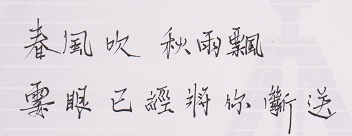 春風吹 秋雨飄
霎眼已經將你斷送